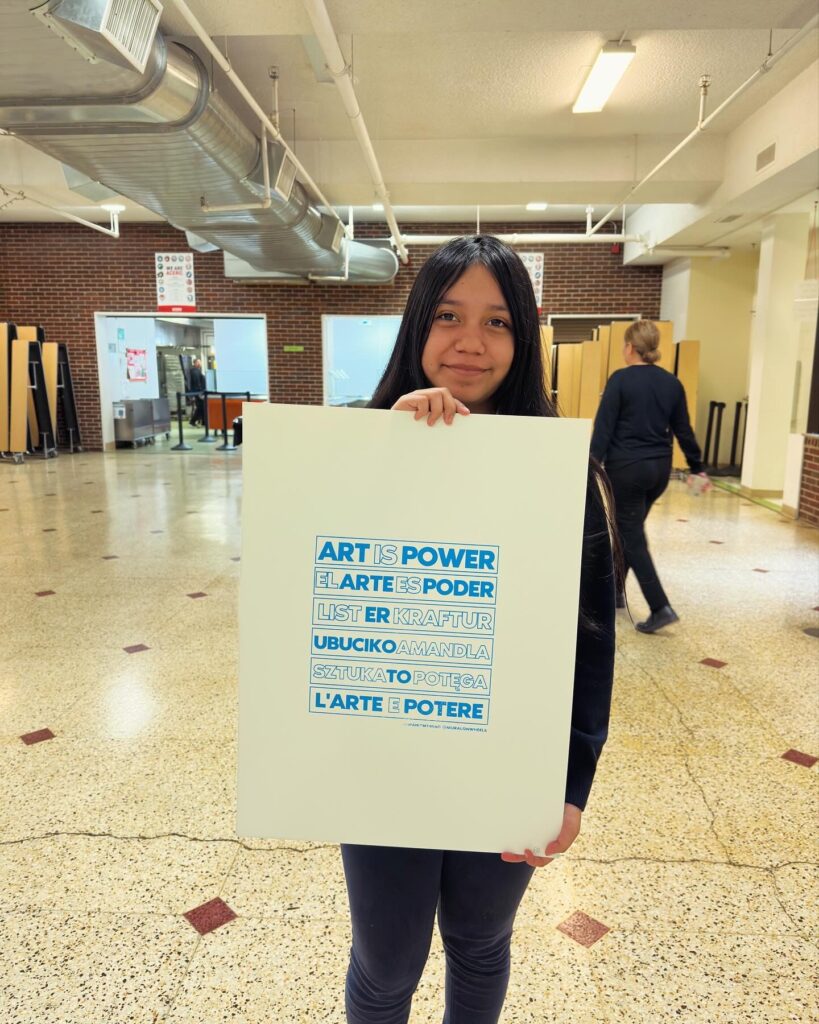 WE ARE
ART IS POWER
EL ARTE ES PODER
LIST ER KRAFTUR
UBUCIKO AMANDLA
SZTUKA TO POTĘGA
L'ARTE E POTERE